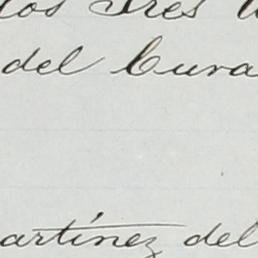 los Tres
del Cura
artínez del